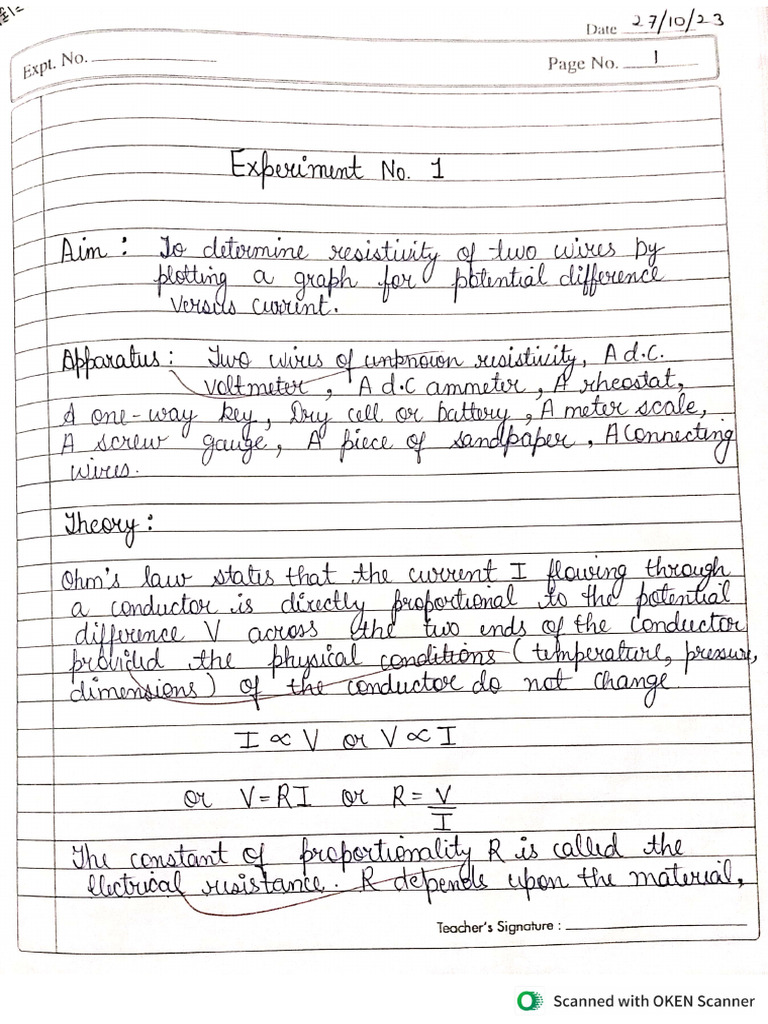 Date 27/10/23
Expt. No.
Page No. 1
Experiment No. 1
Aim : To determine resistivity of two wires by
plotting a graph for potential difference
versus current.
Apparatus : Two wires of unknown resistivity, A d.C.
voltmeter, A d.C ammeter, A rheostat,
A one-way key, Dry cell or battery, A meter scale,
A screw gauge, A piece of sandpaper, A Connecting
wires.
Theory :
Ohm's law states that the current I flowing through
a conductor is directly proportional to the potential
difference V across the two ends of the conductor
provided the physical conditions (temperature, pressure,
dimensions) of the conductor do not change.
I ∝ V or V ∝ I
or V = RI or R = V/I
The constant of proportionality R is called the
electrical resistance. R depends upon the material,
Teacher's Signature :
Scanned with OKEN Scanner